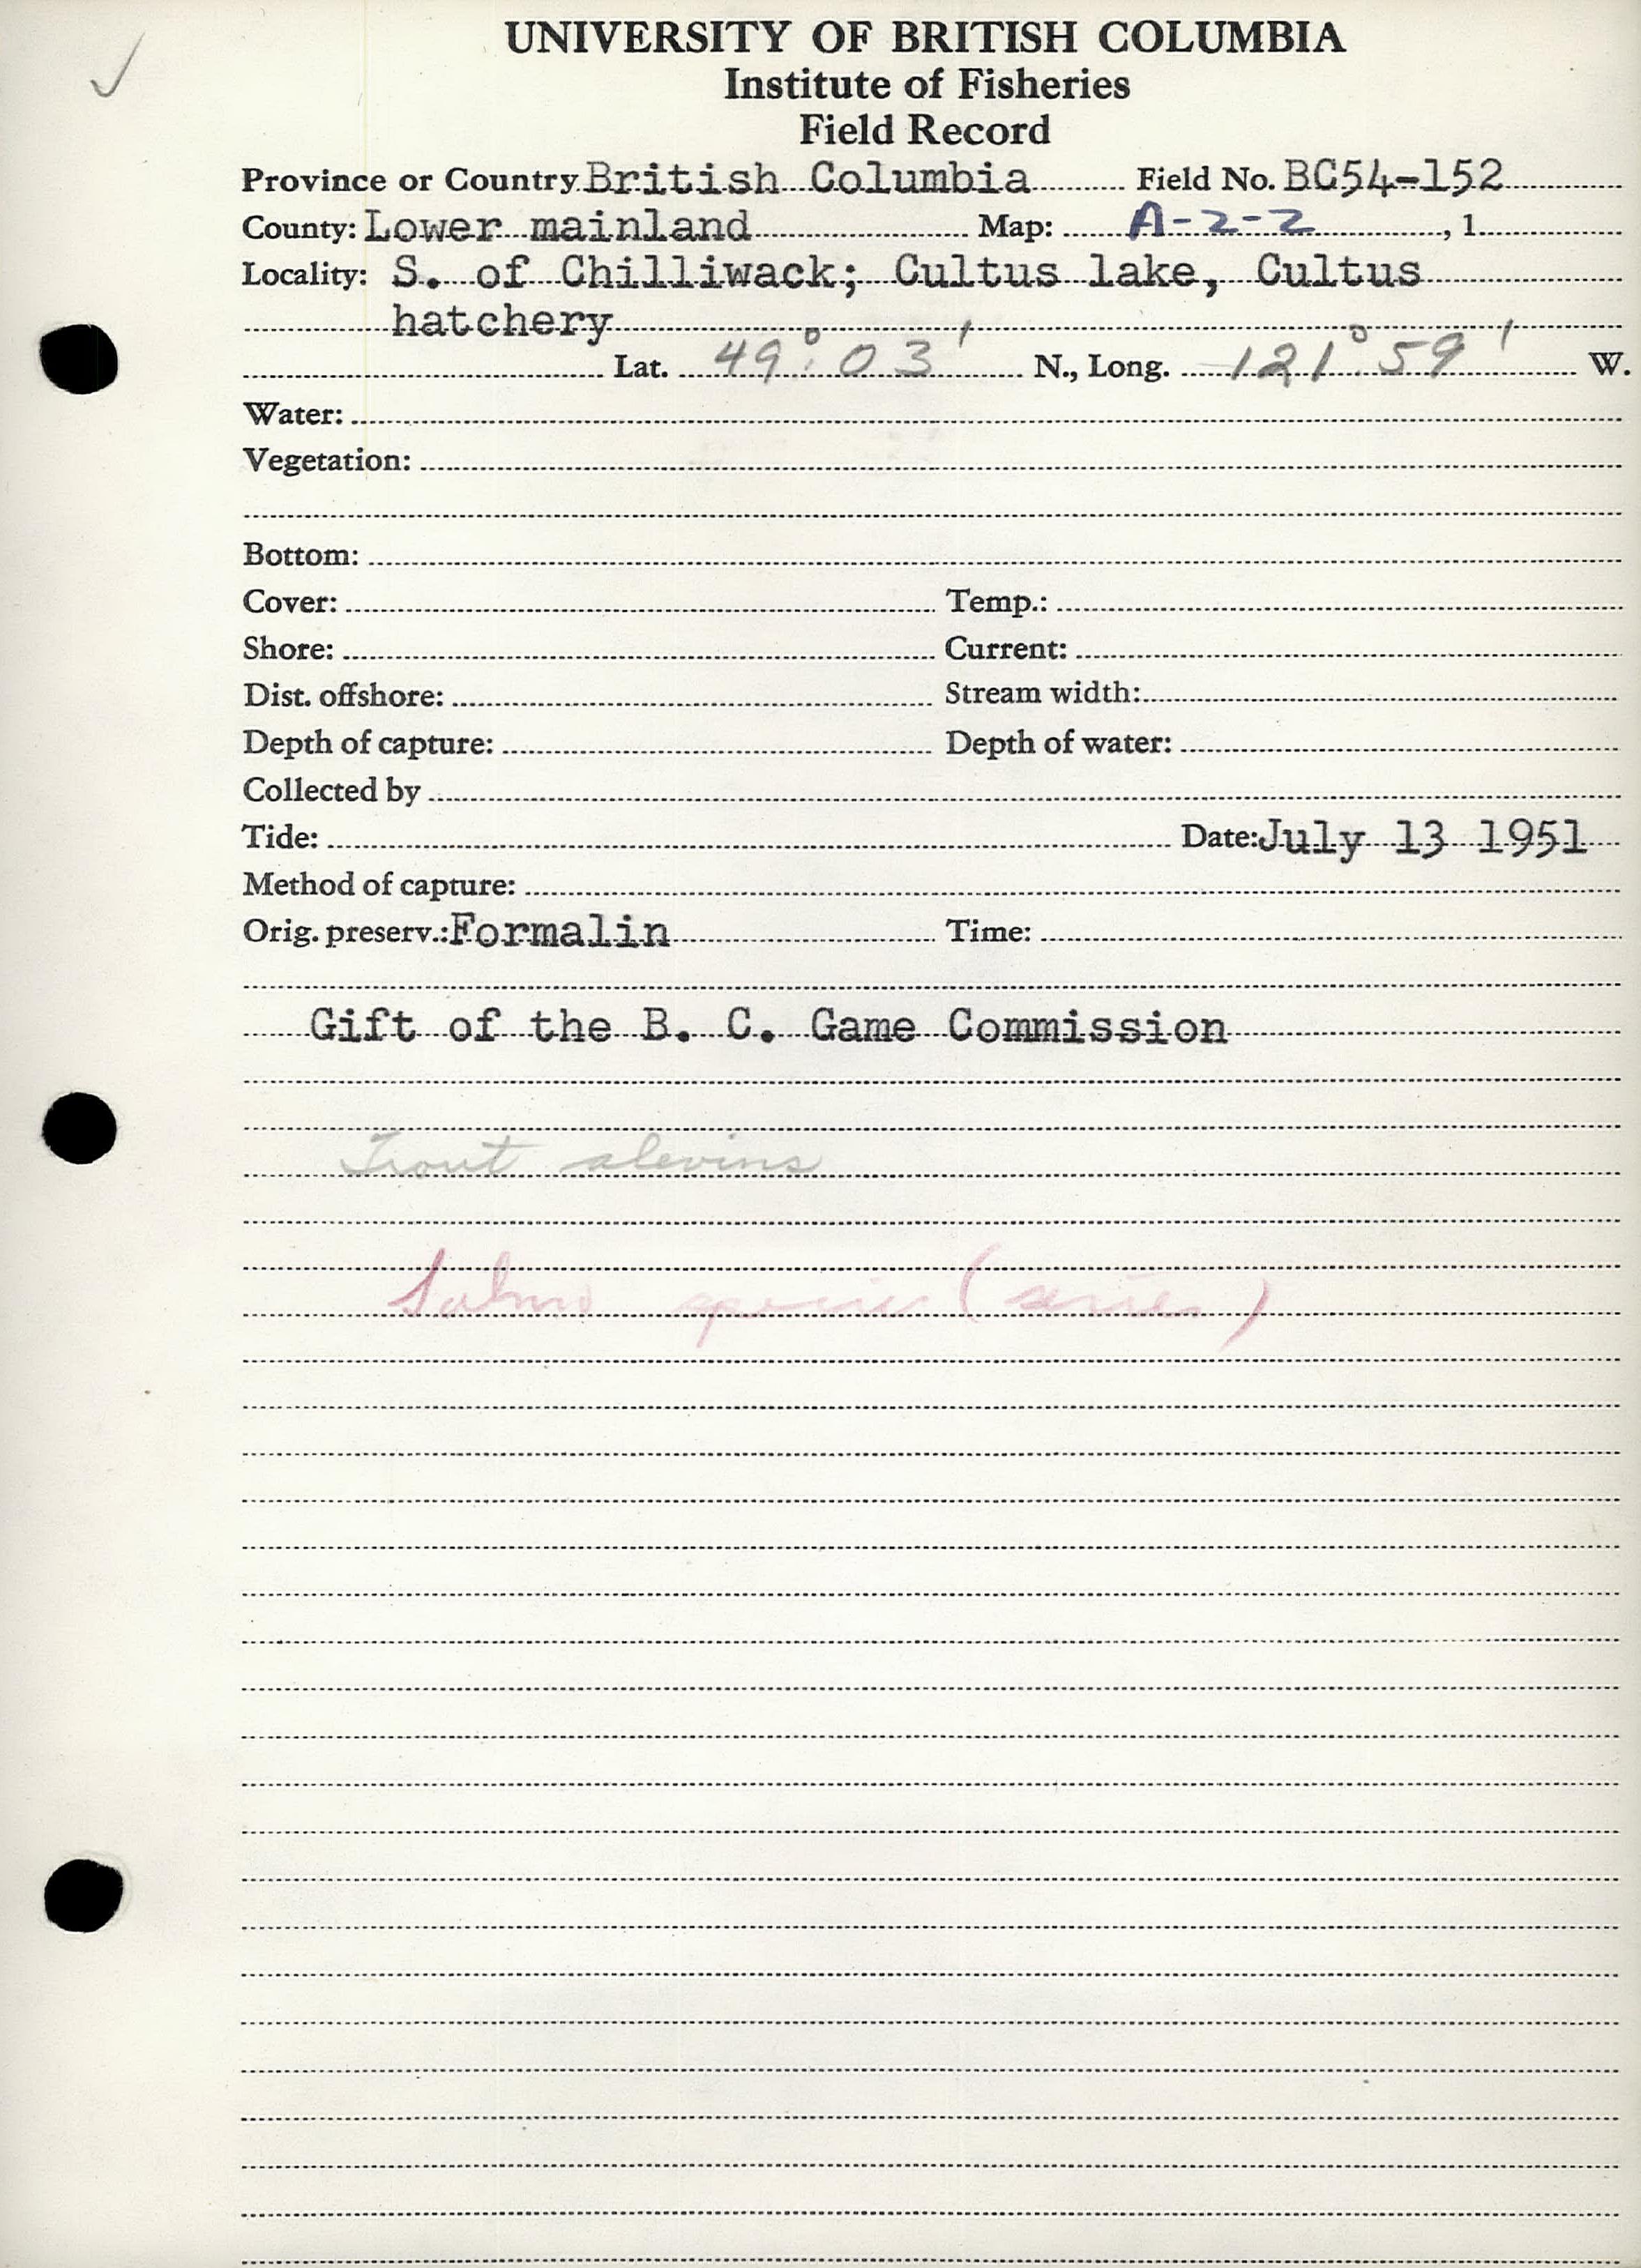 UNIVERSITY OF BRITISH COLUMBIA
Institute of Fisheries
Field Record
Province or Country British Columbia Field No. BC54-152
County: Lower mainland Map: A-2-2, 1
Locality: S. of Chilliwack; Cultus lake, Cultus
hatchery
Lat. 49° 03' N., Long. 121° 59' W.
Water:
Vegetation:
Bottom:
Cover: Temp.:
Shore: Current:
Dist. offshore: Stream width:
Depth of capture: Depth of water:
Collected by
Tide: Date: July 13 1951
Method of capture:
Orig. preserv.: Formalin Time:
Gift of the B. C. Game Commission
Trout alevins
Salmo species (series)